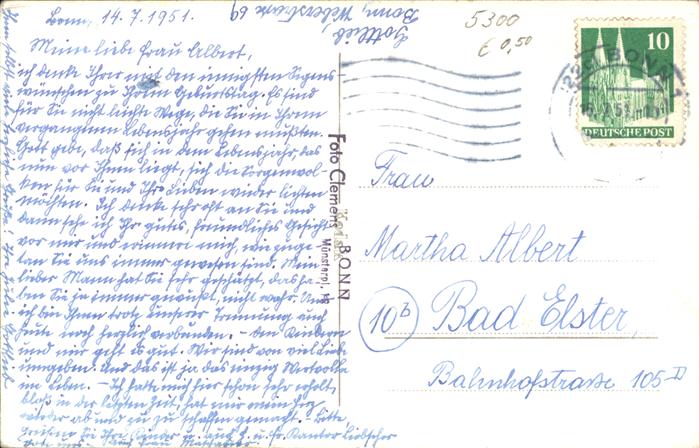 Bonn, 14.7.1951.
Meine liebe Frau Albert,
ich denke Ihrer mit den innigsten Segens-
wünschen zu Ihrem Geburtstag. Es sind
für Sie nicht leichte Wege, die Sie in Ihrem
vergangenen Lebensjahr gehen mußten.
Gott gebe, daß sich in dem Lebensjahr, das
nun vor Ihnen liegt, sich die Sorgenwol-
ken für Sie und Ihre Lieben wieder lichten
möchten. Ich denke sehr oft an Sie und
dann sehe ich Ihr gutes, freundliches Gesicht
vor mir und erinnere mich, wie zuge
tan Sie uns immer gewesen sind. Mein
lieber Mann hat Sie sehr geschätzt, das ha-
ben Sie ja immer gewußt, nicht wahr. Und
ich bin Ihnen trotz unserer Trennung auch
heute noch herzlich verbunden. - Den Kindern
und mir geht es gut. Wir sind von viel Liebe
umgeben. Und das ist ja das einzig Wertvolle
im Leben. - Ich hatte mich hier schon sehr erholt,
bloß in der letzten Zeit, hat mir mein
wieder ab und zu zu schaffen gemacht. Bitte
grüßen Sie Ihre Kinder u. auch Kantor Liebscher
Gottlieb
Bonn, Weberstraße 69
5300
€ 0,50
10
DEUTSCHE POST
BONN
Foto Clemens
BONN
Münsterpl.
Frau
Martha Albert
10b Bad Elster,
Bahnhofstraße 105 D